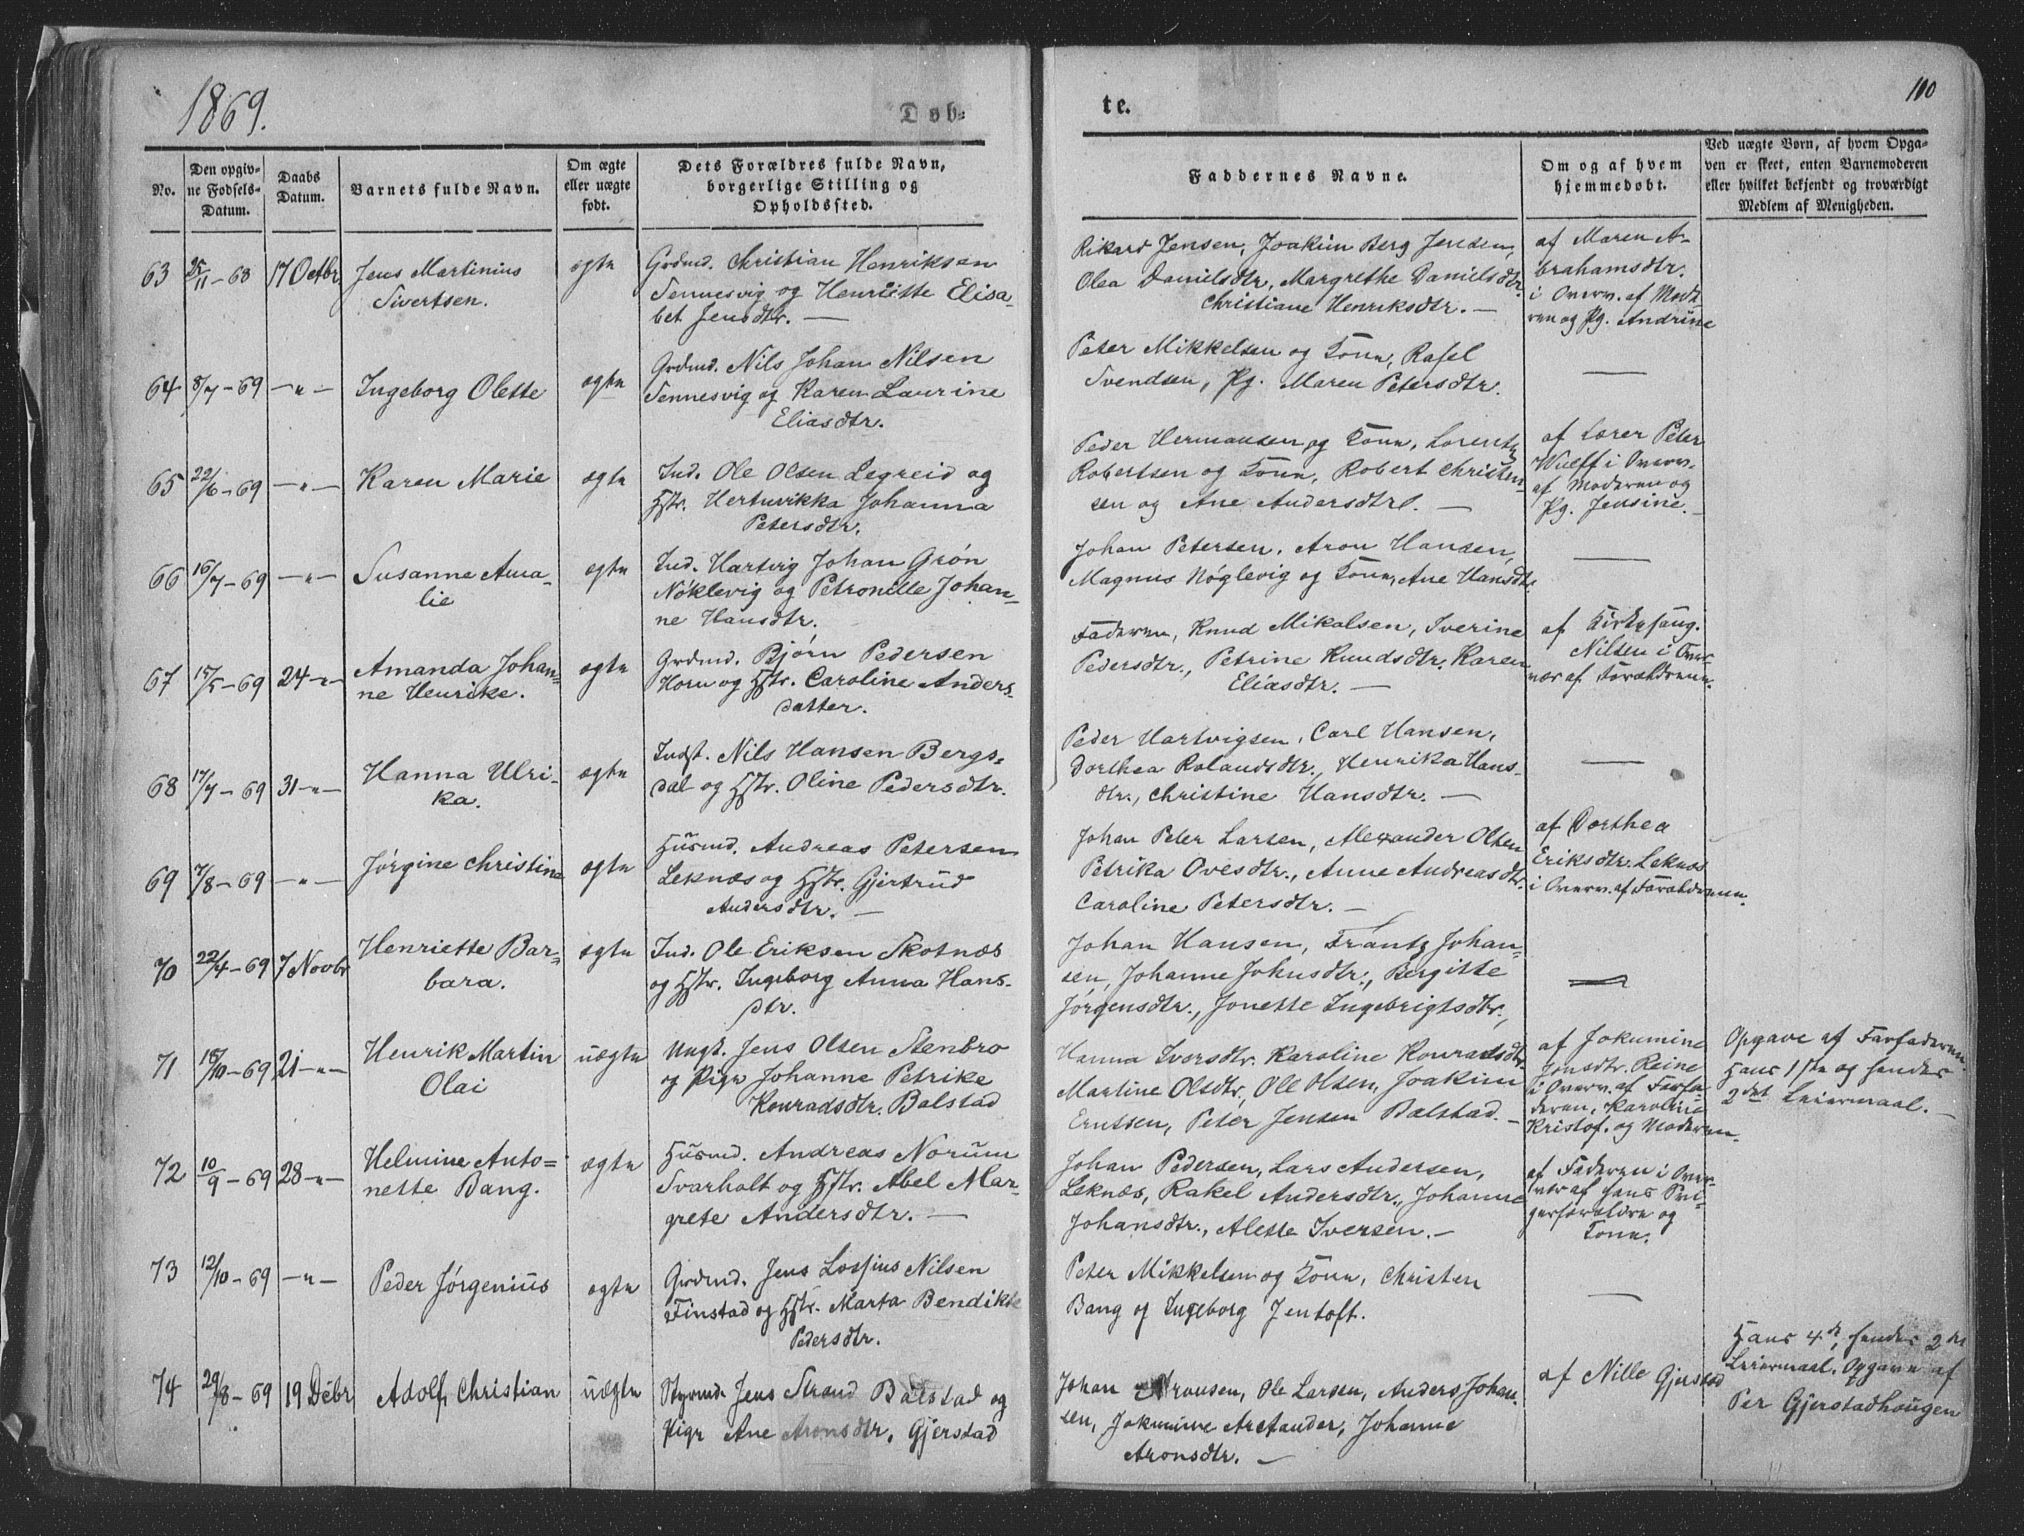 1869.
Døb-
te.
100
No.
Den opgiv-
ne Fødsels-
Datum.
Daabs
Datum.
Barnets fulde Navn.
Om ægte
eller uægte
født.
Dets Forældres fulde Navn,
borgerlige Stilling og
Opholdssted.
Faddernes Navne.
Om og af hvem
hjemmedøbt.
Ved uægte Børn, af hvem Opga-
ven er skeet, enten Barnemoderen
eller hvilket bekjendt og troværdigt
Medlem af Menigheden.
63 25/11-68 17 Octbr. Jens Martinius
Sivertsen.
ægte
Grdmd. Christian Henriksen
Sennesvig og Henriette Elisa-
bet Jensdtr. —
Rikard Jensen, Joakim Berg Jensen,
Olea Danielsdtr, Margrethe Danielsdtr.
Christiane Henriksdtr. —
af Maren A-
brahamsdtr.
i Overv. af Mode-
ren og Pg. Andrine
64 8/7-69 —"— Ingeborg Olette
ægte
Grdmd. Nils Johan Nilsen
Sennesvig og Karen Laurine
Eliasdtr.
Peter Mikkelsen og Kone, Rafel
Svendsen, Pg. Maren Petersdtr.
—
65 22/6-69 —"— Karen Marie
ægte
Ind. Ole Olsen Legreid og
Hstr. Hertuvikka Johanna
Petersdtr.
Peder Hermansen og Kone, Lorentz
Robertsen og Kone, Robert Christen-
sen og Ane Andersdtr. —
af Lærer Peter
Wulff i Overv.
af Moderen og
Pg. Jensine.
66 16/7-69 —"— Susanne Ama-
lie
ægte
Ind. Hartvig Johan Grøn
Nøklevig og Petronille Johan-
ne Hansdtr.
Johan Petersen, Aron Hansen,
Magnus Nøglevig og Kone, Ane Hansdtr.
—
67 15/5-69 24—"— Amanda Johan-
ne Henrike.
ægte
Grdmd. Bjørn Pedersen
Horn og Hstr. Caroline Anders-
datter.
Faderen, Knud Mikalsen, Iverine
Pedersdtr., Petrine Knudsdtr. Karen
Eliasdtr. —
af Kirkesang.
Nilsen i Over-
vær af Forældrene.
68 17/7-69 31—"— Hanna Ulri-
ka.
ægte
Indst. Nils Hansen Bergs-
dal og Hstr. Oline Pedersdtr.
Peder Hartvigsen, Carl Hansen,
Dorthea Rolandsdtr., Henrika Hans-
dtr., Christine Hansdtr. —
—
69 7/8-69 —"— Jørgine Christine
ægte
Husmd. Andreas Petersen
Leknæs og Hstr. Gjertrud
Andersdtr. —
Johan Peter Larsen, Alexander Olsen
Petrika Ovesdtr., Anne Andreasdtr.
Caroline Petersdtr. —
af Dorthea
Eriksdtr. Leknæs
i Overv. af Forældrene.
70 22/4-69 7 Novbr. Henriette Bar-
bara.
ægte
Ind. Ole Eriksen Skotnæs
og Hstr. Ingeborg Anna Hans-
dtr.
Johan Hansen, Frantz Johan-
sen, Johanne Johnsdtr., Bergitte
Jørgensdtr., Jonette Ingebrigtsdtr.,
—
71 18/10-69 21—"— Henrik Martin
Olai
uægte
Ungk. Jens Olsen Stenbro
og Pige Johanne Petrike
Konradsdtr. Balstad
Hanna Iversdtr. Karoline Konradsdtr.
Martine Olsdtr, Ole Olsen, Joakim
Erntsen, Peter Jensen Balstad. —
af Jokumine
Jonsdtr. Reine
i Overv. af Farfa-
deren, Karoline
Kristof. og Moderen.
Opgave af Farfaderen.
Hans 1ste og hendes
2det Leiermaal. —
72 10/9-69 28—"— Helmine Anto-
nette Bang.
ægte
Husmd. Andreas Norum
Svarholt og Hstr. Abel Mar-
grete Andersdtr. —
Johan Pedersen, Lars Andersen,
Leknæs, Rakel Andersdtr., Johanne
Johansdtr., Alette Iversen. —
af Faderen i Over-
vær af hans Svi-
gerforældre og
Kone.
73 12/10-69 —"— Peder Jørgenius
ægte
Grdmd. Jens Lossius Nilsen
Finstad og Hstr. Marta Bendikte
Pedersdtr.
Peter Mikkelsen og Kone, Christen
Bang og Ingeborg Jentoft.
—
74 29/8-69 19 Debr. Adolf Christian
uægte
Styrmd. Jens Strand Balstad og
Pige Ane Aronsdtr. Gjerstad
Johan Aronsen, Ole Larsen, Anders Johan-
sen, Jokumine Arctander, Johanne
Aronsdtr. —
af Nille Gjerstad
Hans 4de, hendes 2det
Leiermaal. Opgave af
Per Gjerstadhougen